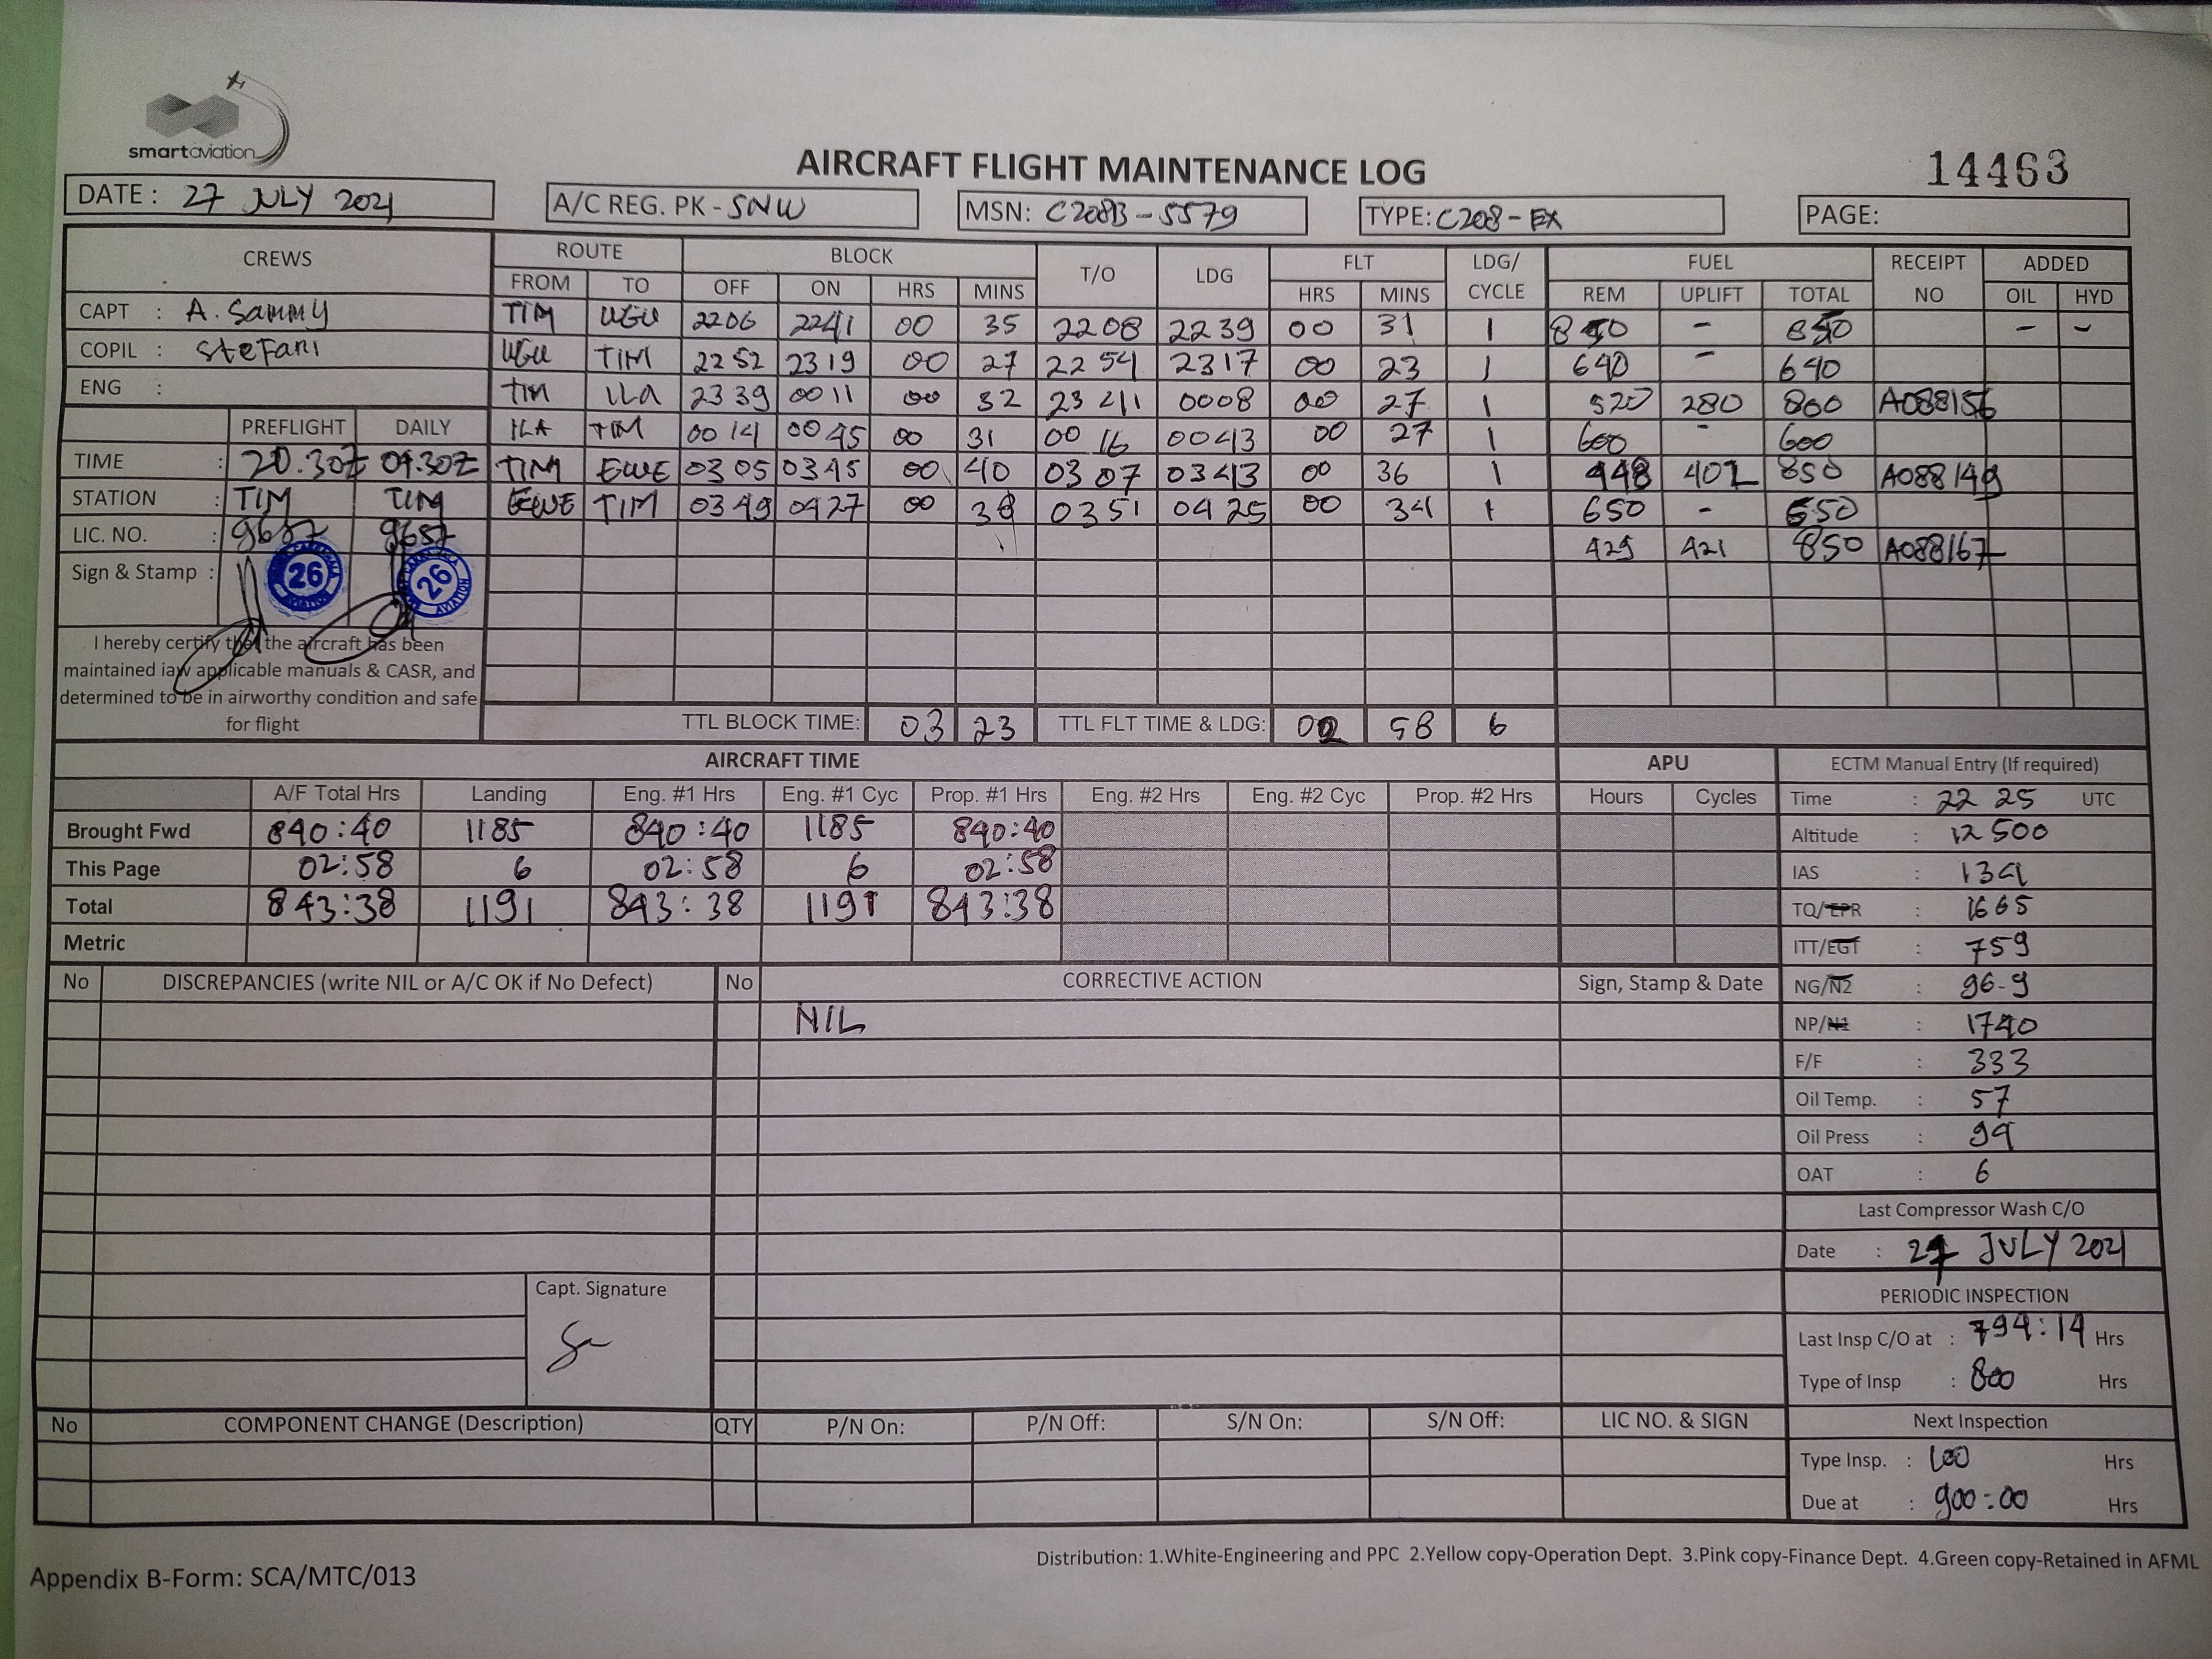 smartaviation
AIRCRAFT FLIGHT MAINTENANCE LOG
14463
DATE : 27 JULY 2021
A/C REG. PK - SNW
MSN: C208B - 5579
TYPE: C208 - EX
PAGE:
CREWS ROUTE BLOCK T/O LDG FLT LDG/ CYCLE FUEL RECEIPT NO ADDED
FROM TO OFF ON HRS MINS HRS MINS REM UPLIFT TOTAL OIL HYD
CAPT : A. Sammy
COPIL : Stefani
ENG :
TIM UGU 2206 2241 00 35 2208 2239 00 31 1 850 - 850 - -
UGU TIM 2252 2319 00 27 2254 2317 00 23 1 640 - 640
TIM ILA 2339 0011 00 32 2341 0008 00 27 1 520 280 800 A088156
ILA TIM 0014 0045 00 31 0016 0043 00 27 1 600 - 600
TIM EWE 0305 0345 00 40 0307 0343 00 36 1 448 402 850 A088149
EWE TIM 0349 0427 00 38 0351 0425 00 34 1 650 - 650
429 421 850 A088167
PREFLIGHT DAILY
TIME : 20.30Z 04.30Z
STATION : TIM TIM
LIC. NO. : 9657 9657
Sign & Stamp :
26
26
AVIATION
I hereby certify that the aircraft has been
maintained iaw applicable manuals & CASR, and
determined to be in airworthy condition and safe
for flight
TTL BLOCK TIME: 03 23 TTL FLT TIME & LDG: 02 58 6
AIRCRAFT TIME APU
A/F Total Hrs Landing Eng. #1 Hrs Eng. #1 Cyc Prop. #1 Hrs Eng. #2 Hrs Eng. #2 Cyc Prop. #2 Hrs Hours Cycles
Brought Fwd 840:40 1185 840:40 1185 840:40
This Page 02:58 6 02:58 6 02:58
Total 843:38 1191 843:38 1191 843:38
Metric
ECTM Manual Entry (If required)
Time : 22 25 UTC
Altitude : 12 500
IAS : 134
TQ/EPR : 1665
ITT/EGT : 759
NG/N2 : 96-9
NP/N1 : 1740
F/F : 333
Oil Temp. : 57
Oil Press : 99
OAT : 6
Last Compressor Wash C/O
Date : 27 JULY 2021
PERIODIC INSPECTION
Last Insp C/O at : 794:14 Hrs
Type of Insp : 800 Hrs
Next Inspection
Type Insp. : 100 Hrs
Due at : 900:00 Hrs
No DISCREPANCIES (write NIL or A/C OK if No Defect) No CORRECTIVE ACTION Sign, Stamp & Date
NIL
Capt. Signature
No COMPONENT CHANGE (Description) QTY P/N On: P/N Off: S/N On: S/N Off: LIC NO. & SIGN
Distribution: 1.White-Engineering and PPC 2.Yellow copy-Operation Dept. 3.Pink copy-Finance Dept. 4.Green copy-Retained in AFML
Appendix B-Form: SCA/MTC/013